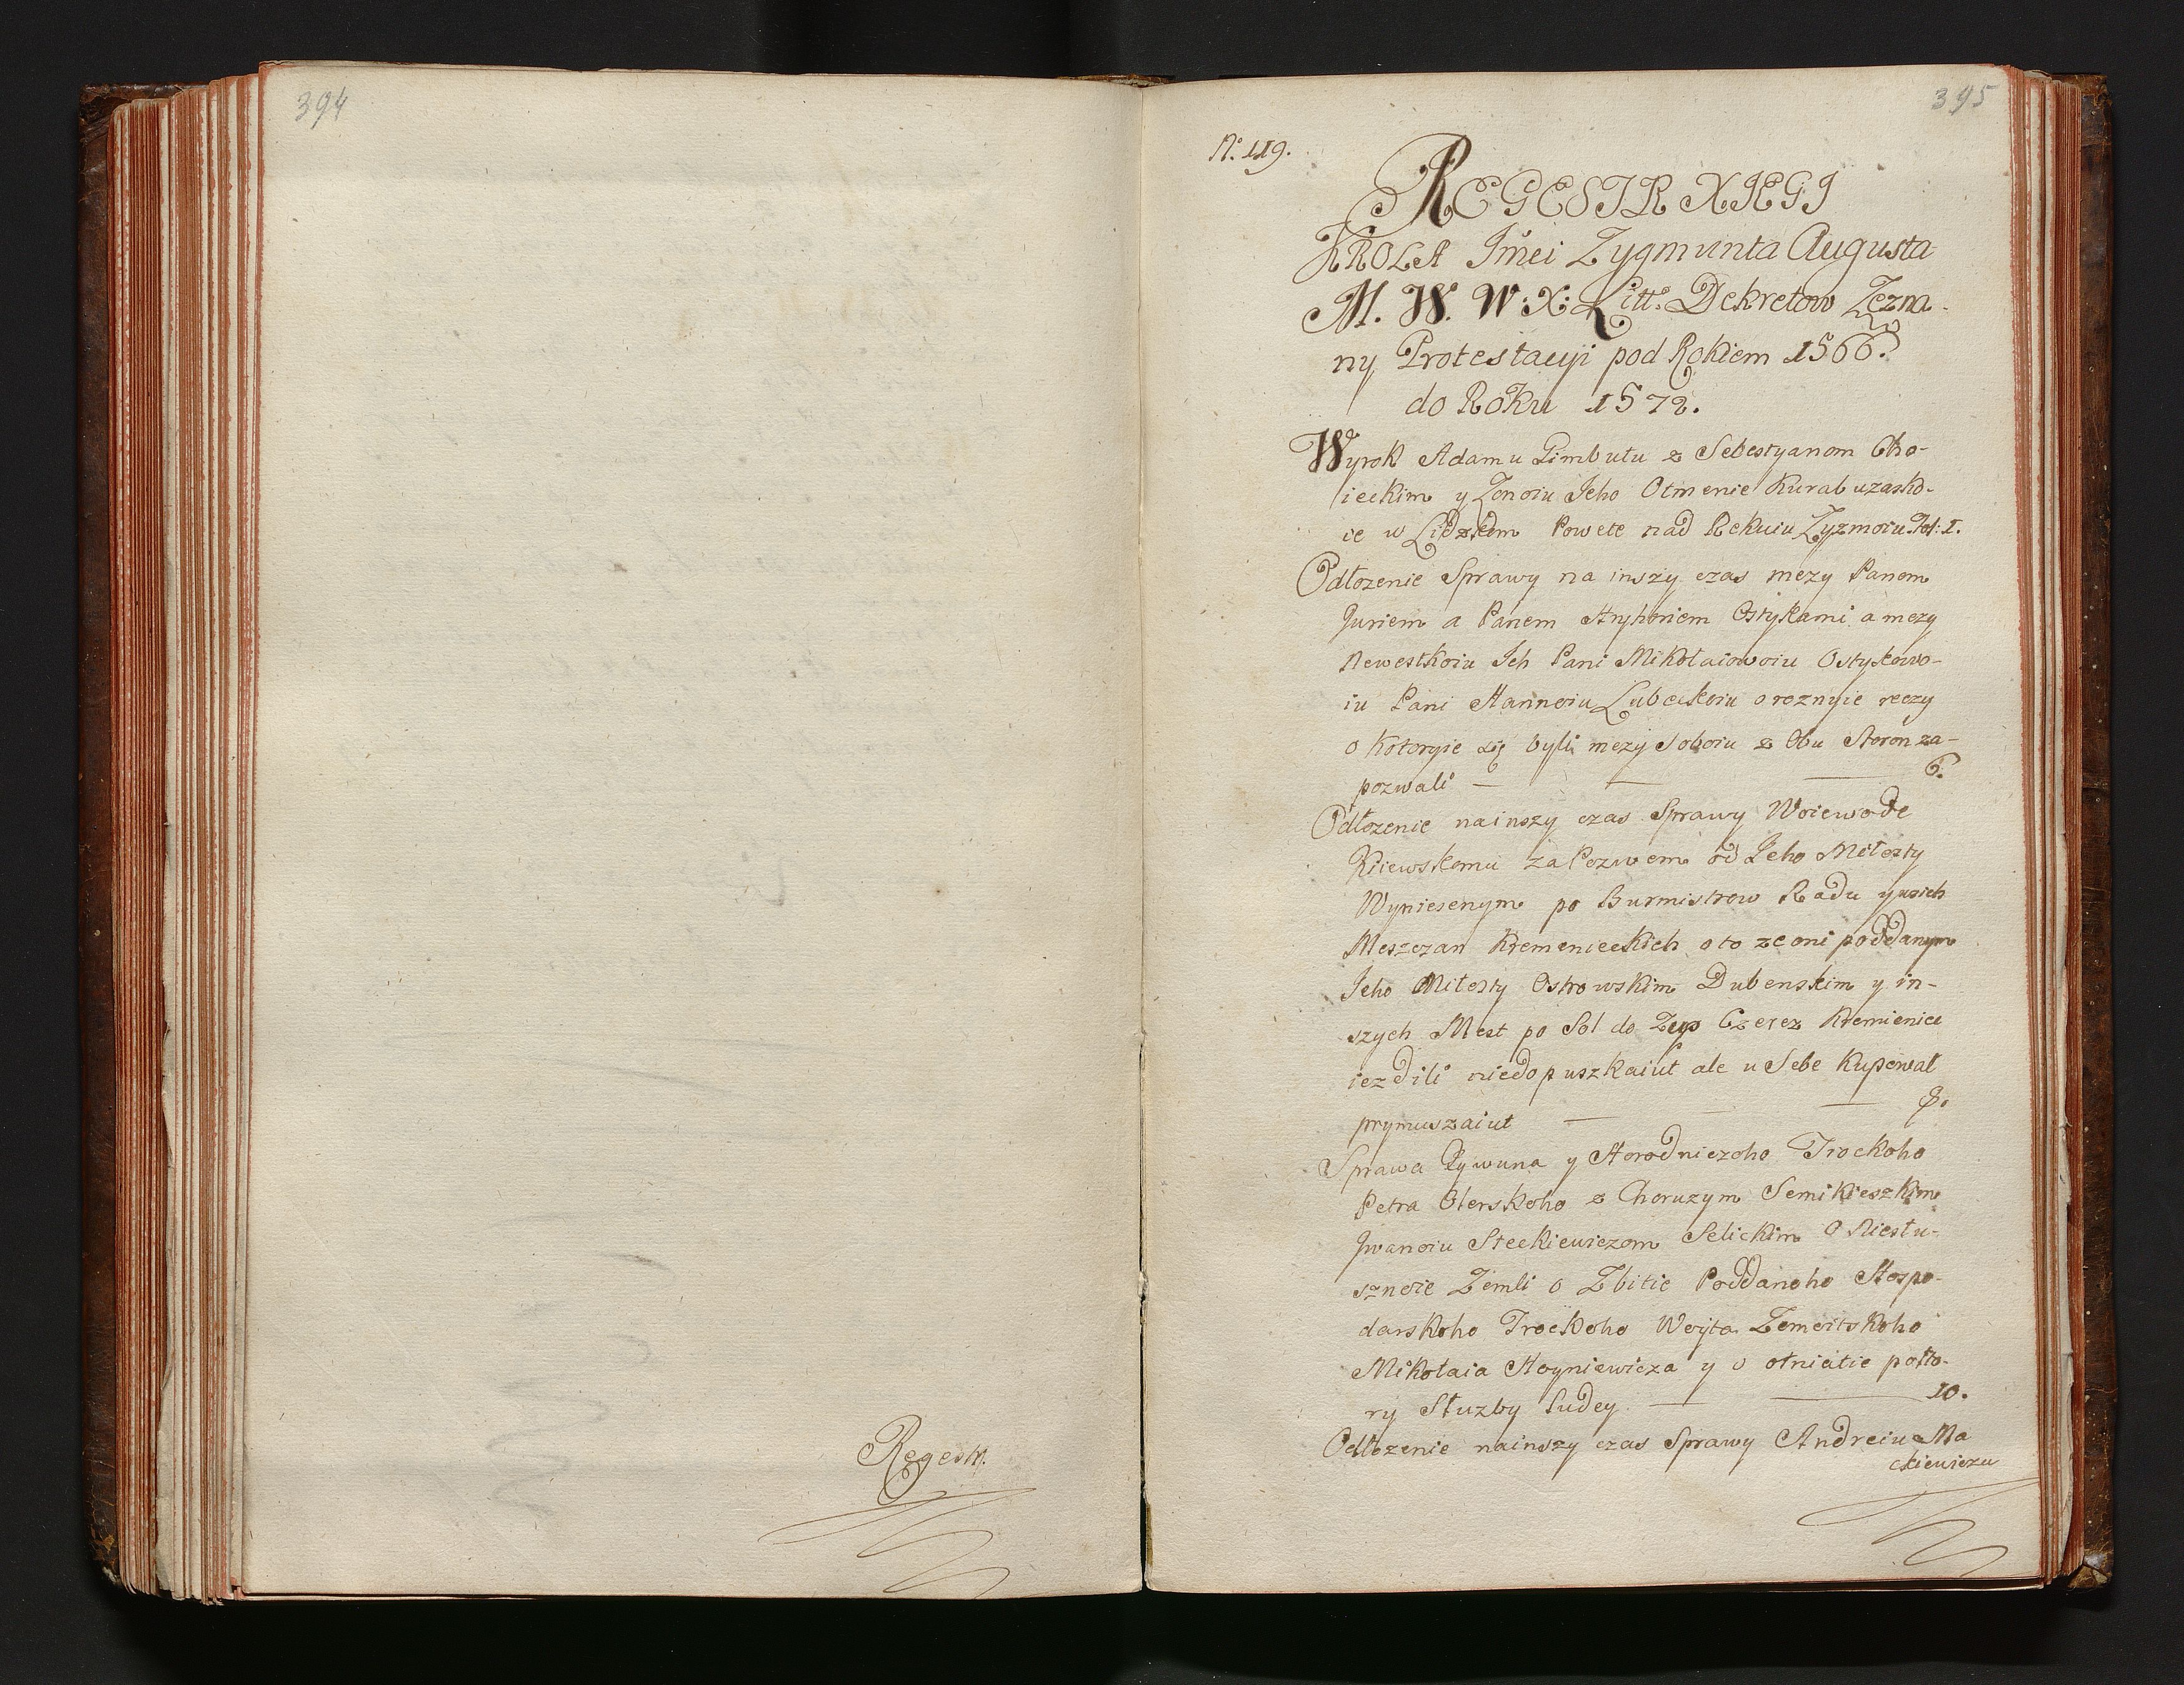 394
Regestr.
395
N. 119.
REGESTR XIĘGI
KROLA Jmci Zygmunta Augusta
M. W. W: X: Litt: Dekretow Zezna-
ny Protestacyji pod Rokiem 1566.
do Roku 1572.
Wyrok Adamu Gimbutu z Sebestyanom Cho-
ieckim y Zonoiu Jeho Otmenie Kurab uzasko-
ie w Lidzkom Powete nad Rekuiu Zyzmoiu Fol: 1.
Odłozenie Sprawy na inszy czas mezy Panom
Juriem a Panem Hryhoriem Ostykami a mezy
Newestkoiu Jeh Pani Mikołaiowoiu Ostykowo-
iu Pani Hannoiu Lubeckoiu o roznyie reczy
o Kotoryie się byli mezy soboiu z Obu Storon za-
pozwali — — — 6.
Odłozenie nainszy czas Sprawy Woiewode
Kiiewskomu za Pozwem od Jeho Miłosty
Wyniesenym po Burmistrow Radu y wsich
Meszczan Kremenieckich o to ze oni poddanym
Jeho Miłosty Ostrowskim Dubenskim y in-
szych Mest po Sol do Zup Czerez Kremieniec
iezdili niedopuszkaiut ale u Sebe Kupowat
prymuszaiut — — — 8.
Sprawa Tywuna y Horodniczoho Trockoho
Petra Oborskoho z Choruzym Semikieszkim
Jwanoiu Steckiewiczom Selickim O Niesłu-
sznoie Zemli o Zbitie Poddanoho Hospo-
darskoho Trockoho Woyta Zemoitskoho
Mikołaia Hoyniewicza y o otniatie połto-
ry Słuzby Ludey. — — 10.
Odłozenie nainszy czas Sprawy Andreiu Ma
ckiewiczu